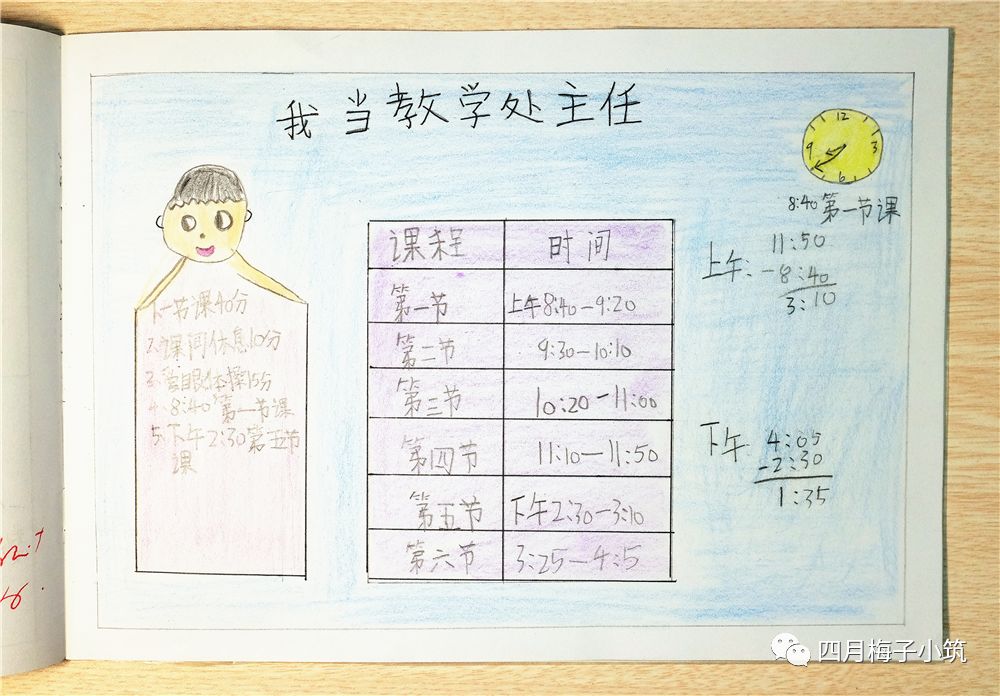 我当教学处主任
12
9 3
6
8:40 第一节课
1、一节课40分
2、课间休息10分
3、眼保体操15分
4、8:40 第一节课
5、下午2:30第五节
课
课程 时间
第一节 上午8:40-9:20
第二节 9:30-10:10
第三节 10:20-11:00
第四节 11:10-11:50
第五节 下午2:30-3:10
第六节 3:25-4:5
上午: 11:50
-8:40
3:10
下午 4:05
-2:30
1:35
四月梅子小筑